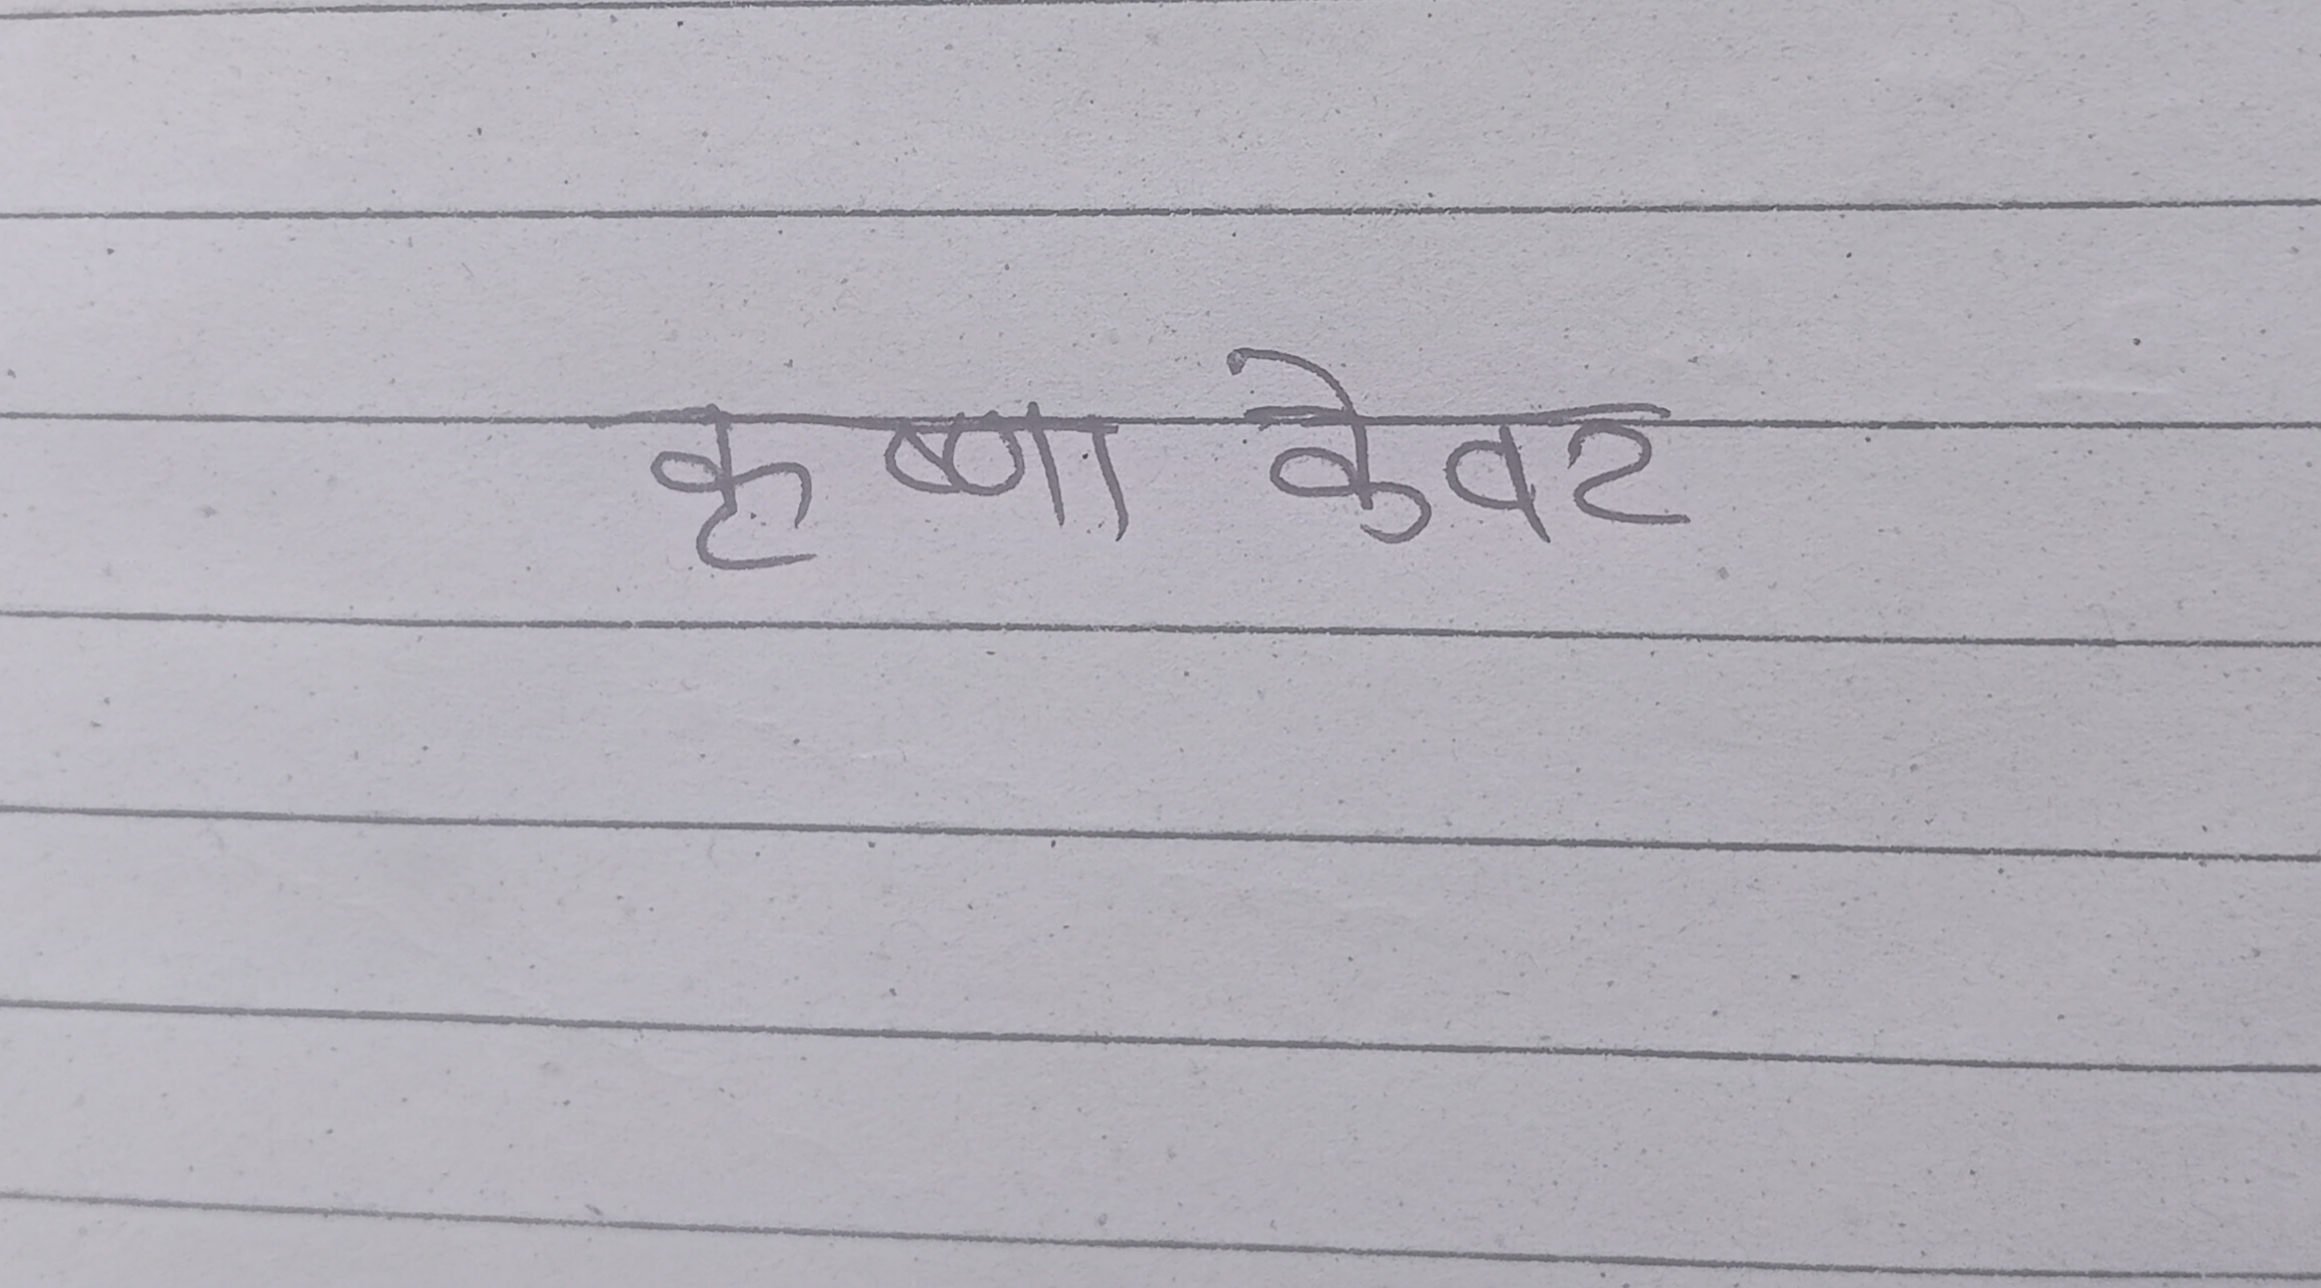 कृष्णा केवट